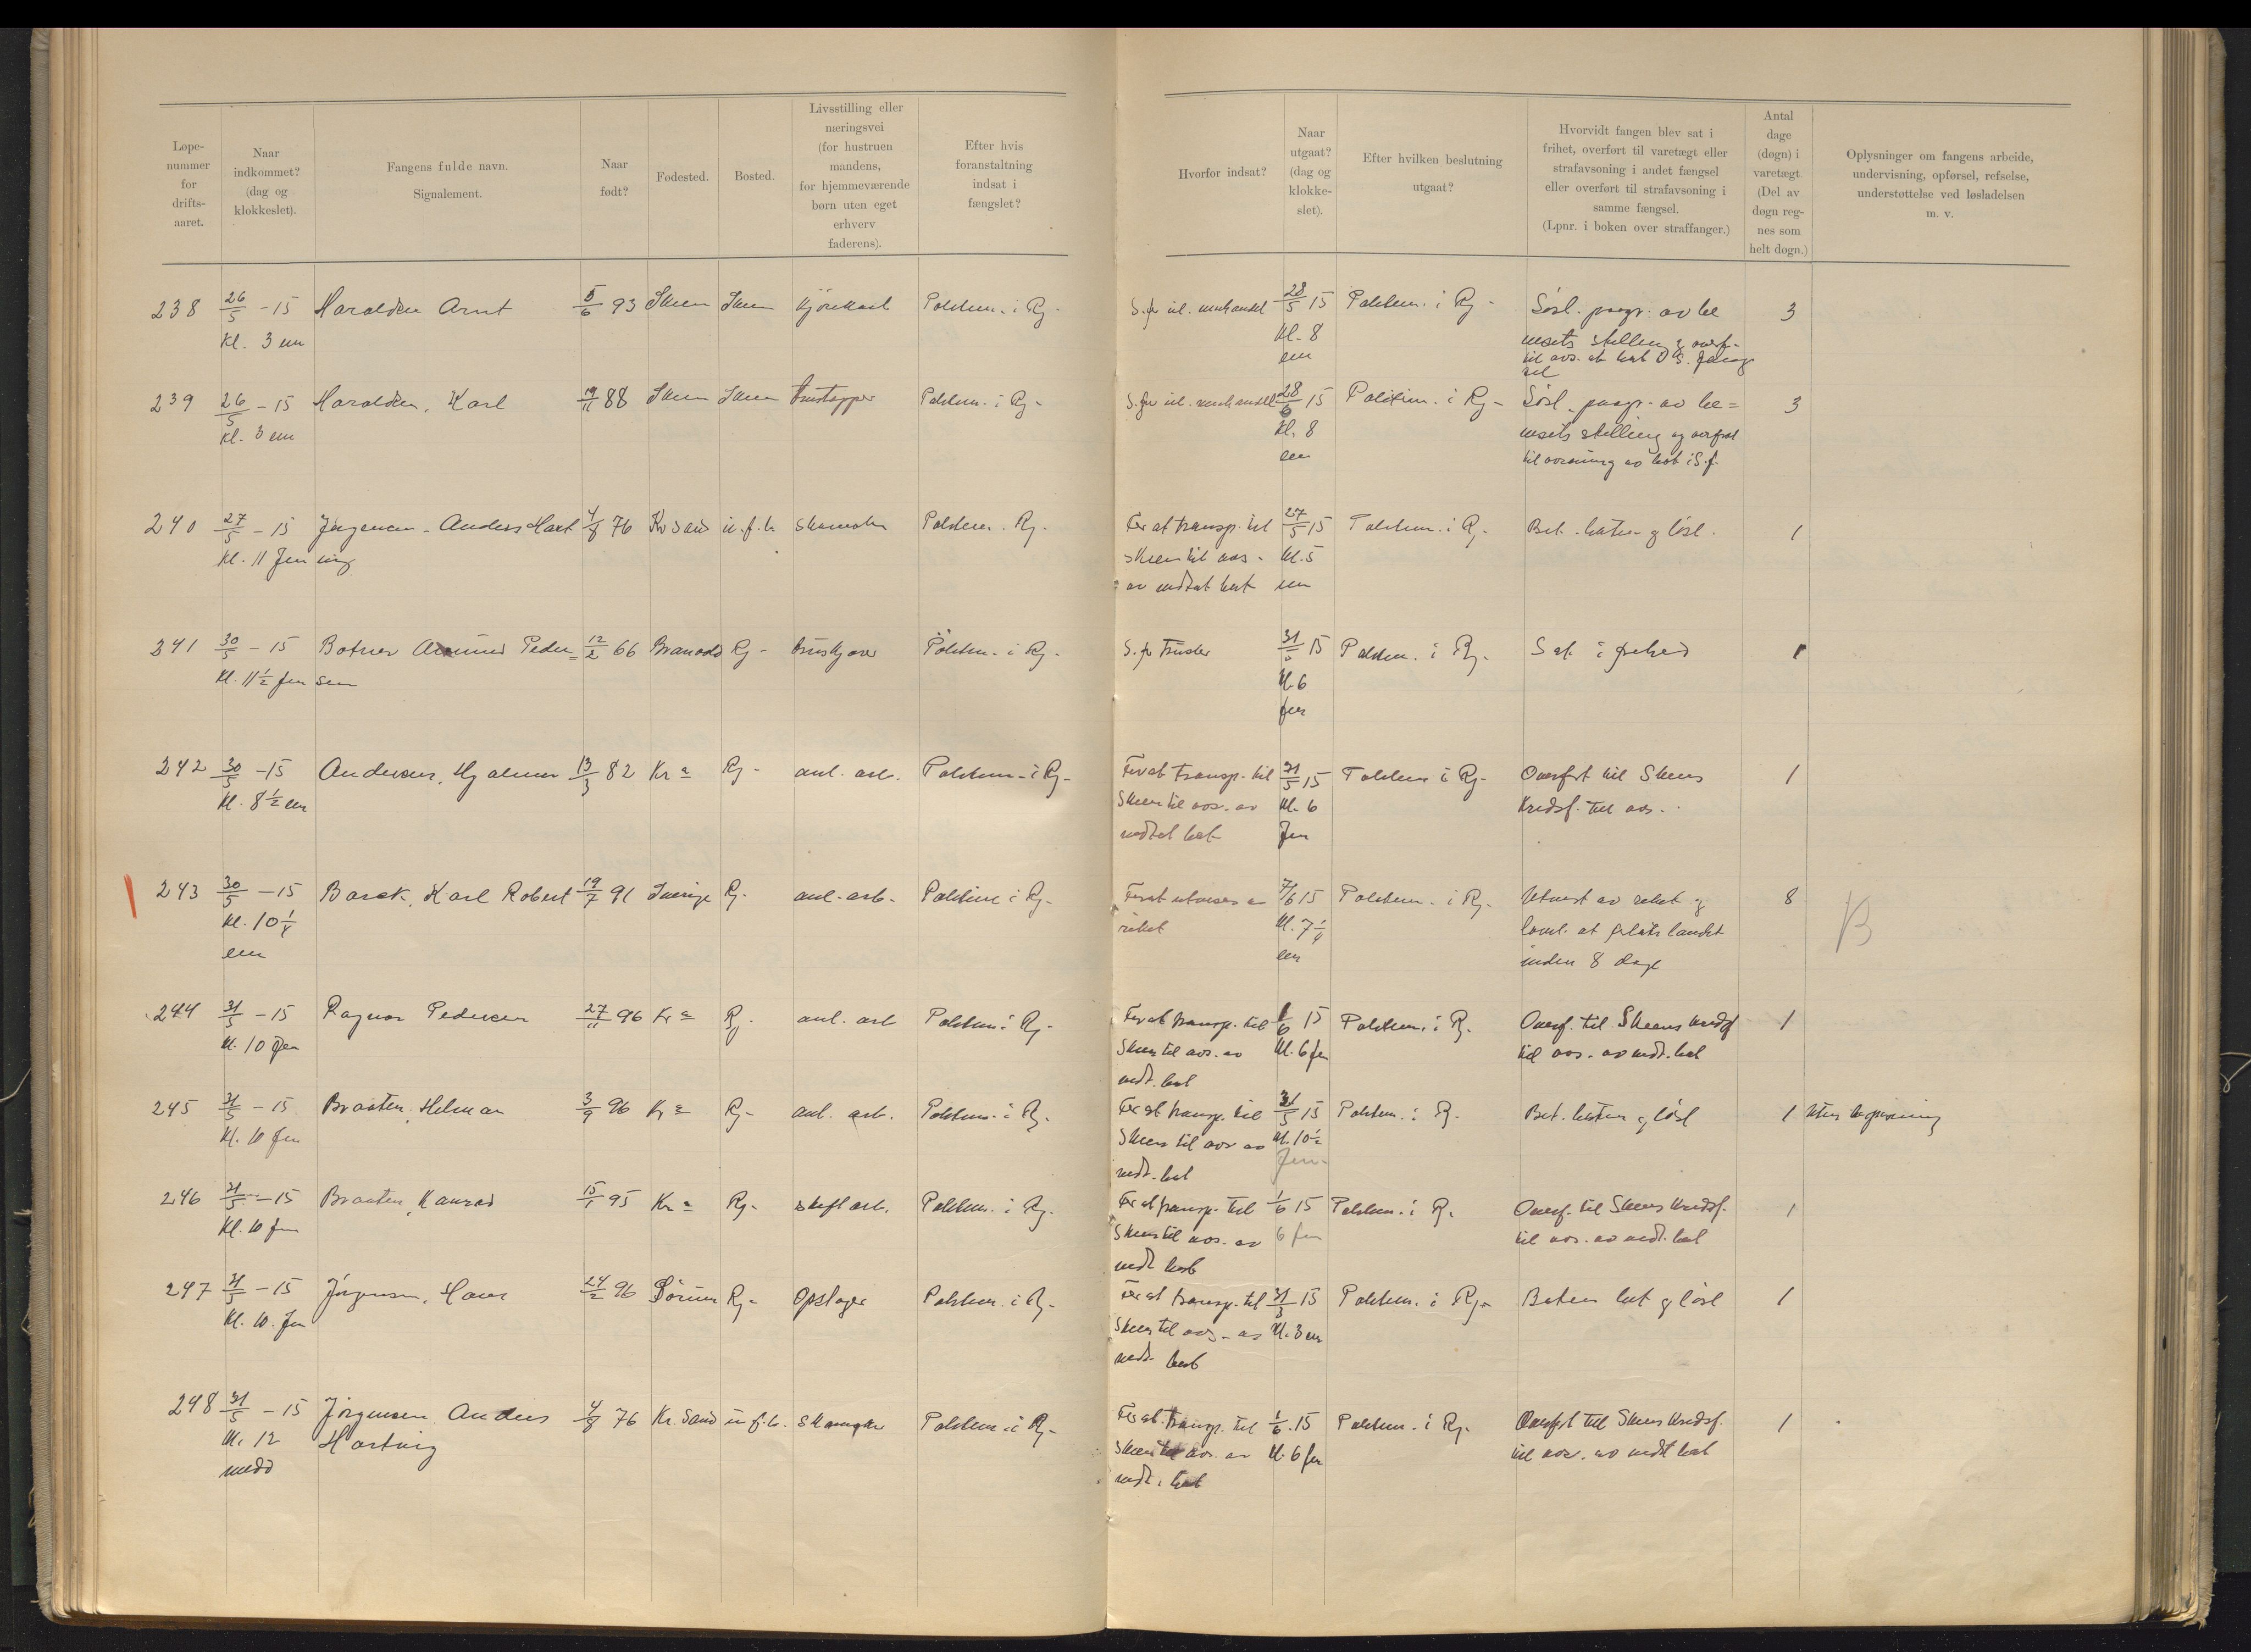 Løpe-
nummer
for
drifts-
aaret.
Naar
indkommet?
(dag og
klokkeslet).
Fangens fulde navn.
Signalement.
Naar
født?
Fødested.
Bosted.
Livsstilling eller
næringsvei
(for hustruen
mandens,
for hjemmeværende
børn uten eget
erhverv
faderens).
Efter hvis
foranstaltning
indsat i
fængslet?
Hvorfor indsat?
Naar
utgaat?
(dag og
klokke-
slet).
Efter hvilken beslutning
utgaat?
Hvorvidt fangen blev sat i
frihet, overført til varetægt eller
strafavsoning i andet fængsel
eller overført til strafavsoning i
samme fængsel.
(Lpnr. i boken over straffanger.)
Antal
dage
(døgn) i
varetægt.
(Del av
døgn reg-
nes som
helt døgn.)
Oplysninger om fangens arbeide,
undervisning, opførsel, refselse,
understøttelse ved løsladelsen
m. v.
238 26/5 - 15 Haralsen Arnt 5/6 93 Skien Skien Kjørekarl Politim. i Rj. 28/5 15 Politim. i Rj - 3
Kl. 3 em Kl. 8
em
239 26/5 - 15 Haralsen, Karl 19/11 88 Skien Skien Politim. i Rj - 28/6 15 Politim. i Rj - 3
Kl. 3 em Kl. 8 
em til avsoning av bot i S.f.
240 27/5 - 15 Jørgensen - Anders Hart 4/8 76 Kr sand u.f.b. skomaker Politim. Rj. For at transp. til 27/5 15 Politim. i Rj - Bet. boten og løsl. 1
Kl. 11 fm vig Skien til avs. Kl. 5
av vedtat bot em
241 30/5 - 15 Peder= 12/2 66 Rj - Politim. i Rj. S. for Trusler 31/5 15 Politim. i Rj. Sat i frihed 1
Kl. 11 1/2 fm sen Kl. 6
fm
242 30/5 - 15 Andersen, Hjalmar 13/3 82 Kr a Rj - anl. arb. Politim - i Rj - For at transp. til 31/5 15 Politim i Rj - Overført til Skiens 1
Kl. 8 1/2 em Skien til avs. av Kl. 6 Kredsf. til avs.
vedtat bot fm
243 30/5 - 15 Karl Robert 19/7 91 Sverige Rj - anl. arb. Politim i Rj - For at utvises av 7/6 15 Politim. i Rj - Utvist av riket og 8
Kl. 10 1/4 riket Kl. 7 1/4 at forlate landet B
em em inden 8 dage
244 31/5 - 15 Ragnar Pedersen 27/11 96 Kr a Rj. anl. arb Politim i Rj - For at transp. til 1/6 15 Politim. i Rj. Overf. til Skiens Kredsf 1
Kl. 10 fm Skien til avs. av Kl. 6 fm til avs. av vedt. bot
vedt. bot
245 31/5 - 15 Braaten, Helmar 3/9 96 Kr a Rj - anl. arb. Politim. i Rj. For at transp. til 31/5 15 Politim. i Rj. Bet. boten og løsl 1 Uten bespisning
Kl. 10 fm Skien til avs av Kl. 10 1/2
vedt. bot fm.
246 31/5 - 15 Braaten, Konrad 15/1 95 Kr a Rj - skift arb. Politim. i Rj. For at transp. til 1/6 15 Politim. i Rj. Overf. til Skiens Kredsf. 1
Kl. 10 fm Skien til avs. av 6 fm til avs. av vedt. bot
vedt bot
247 31/5 - 15 Jørgensen, Hans 24/2 96 Rj - Opslager Politim. i Rj - For at transp. til 31/5 15 Politim. i Rj - Boten bet og løsl 1
Kl. 10. fm Skien til avs. av Kl. 3 em
vedt. bot
248 31/5 - 15 Jørgensen Anders 4/8 76 Kr. Sand u f. b. Skomaker Politim i Rj - For at transp. til 1/6 15 Politim. i Rj. Overført til Skiens Kredsf. 1
Kl. 12 Hartvig Skien til avs. av Kl. 6 fm til avs. av vedt bot
midd vedt. bot